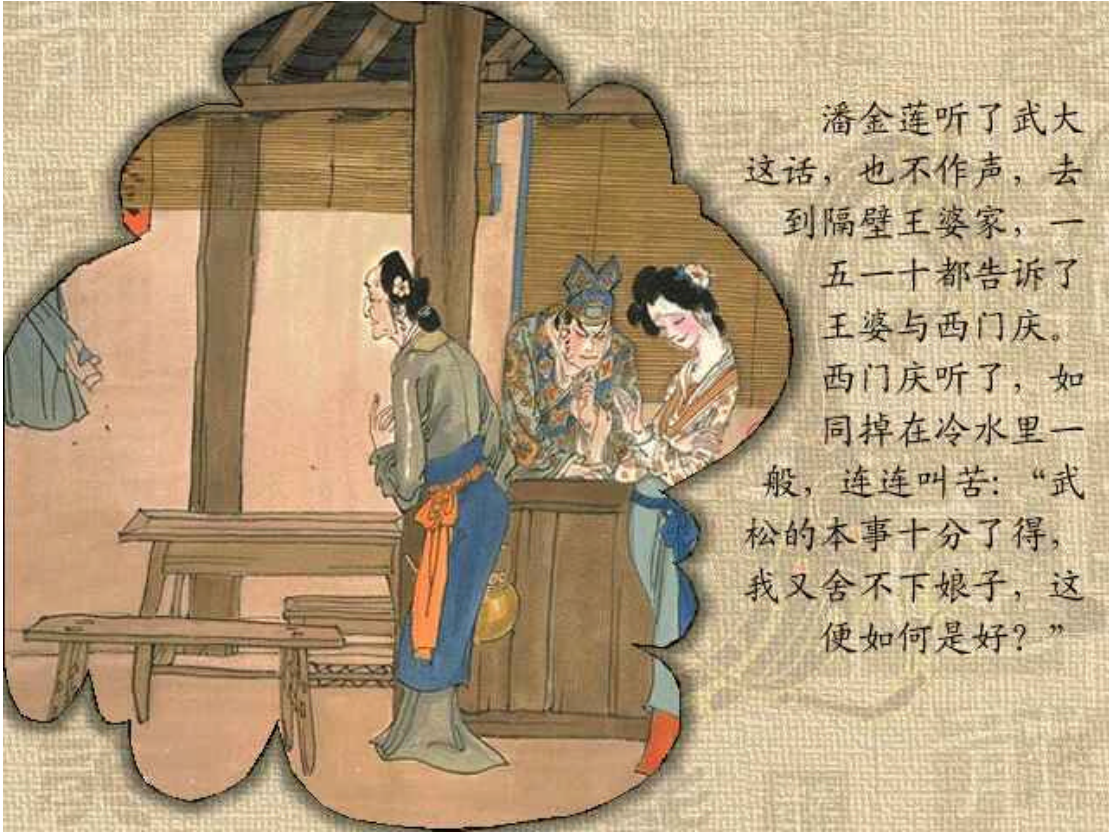 潘金莲听了武大
这话，也不作声，去
到隔壁王婆家，一
五一十都告诉了
王婆与西门庆。
西门庆听了，如
同掉在冷水里一
般，连连叫苦：“武
松的本事十分了得，
我又舍不下娘子，这
便如何是好？”